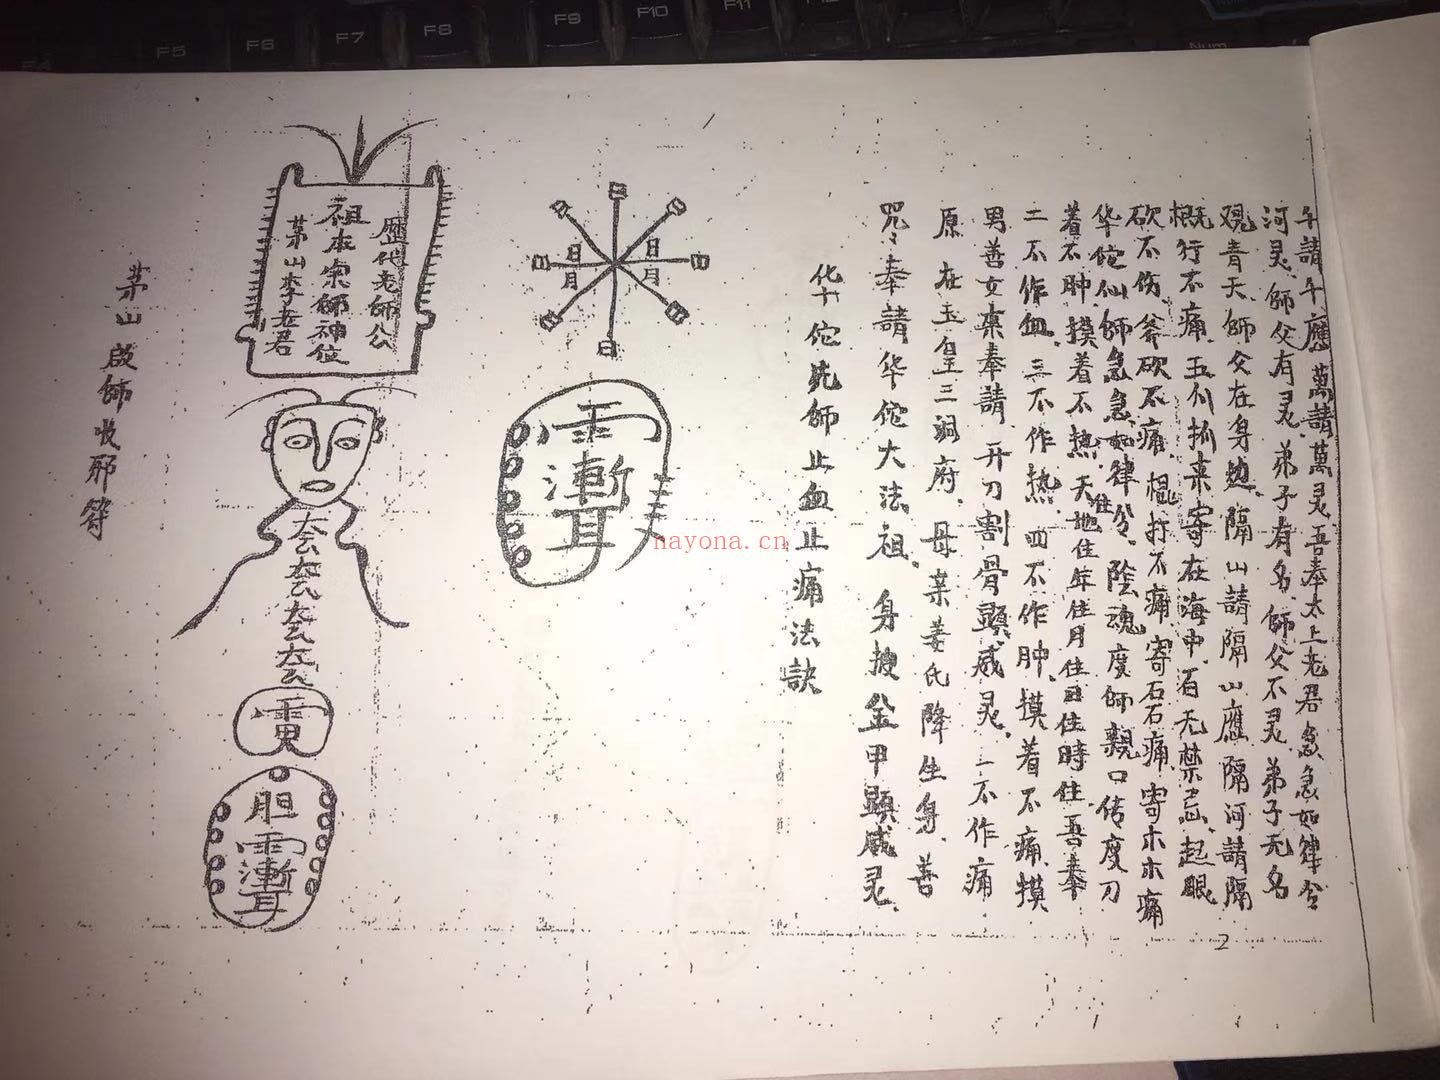 茅山啟師收邪符
茅山李老君
祖本宗師神位
歷代老師公
胆
日月
日月
日
nayona.cn
化十佗先師止血止痛法訣
咒：奉請华佗大法祖、身披金甲顕威灵、
原在玉皇三洞府、母亲姜氏降生身、善
男善女禀奉請、开刀割骨顕威灵、一不作痛
二不作血、三不作热、四不作肿、摸着不痛、摸
着不肿、摸着不热、天住地住年住月住日住時住、吾奉
华佗仙師急急如律令、陰魂度師親口传度刀
砍不伤、斧砍不痛、棍打不痛、寄石石痛、寄木木痛
概行不痛、五爪抓来寄在海中、百无禁忌、起眼
观青天、師父在身边、隔山請隔山應、隔河請隔
河灵、師父有灵、弟子有名、師父不灵、弟子无名
千請千應、萬請萬灵、吾奉太上老君急急如律令
2
F5
F6
F7
F8
F9
F10
F11
F12
Num